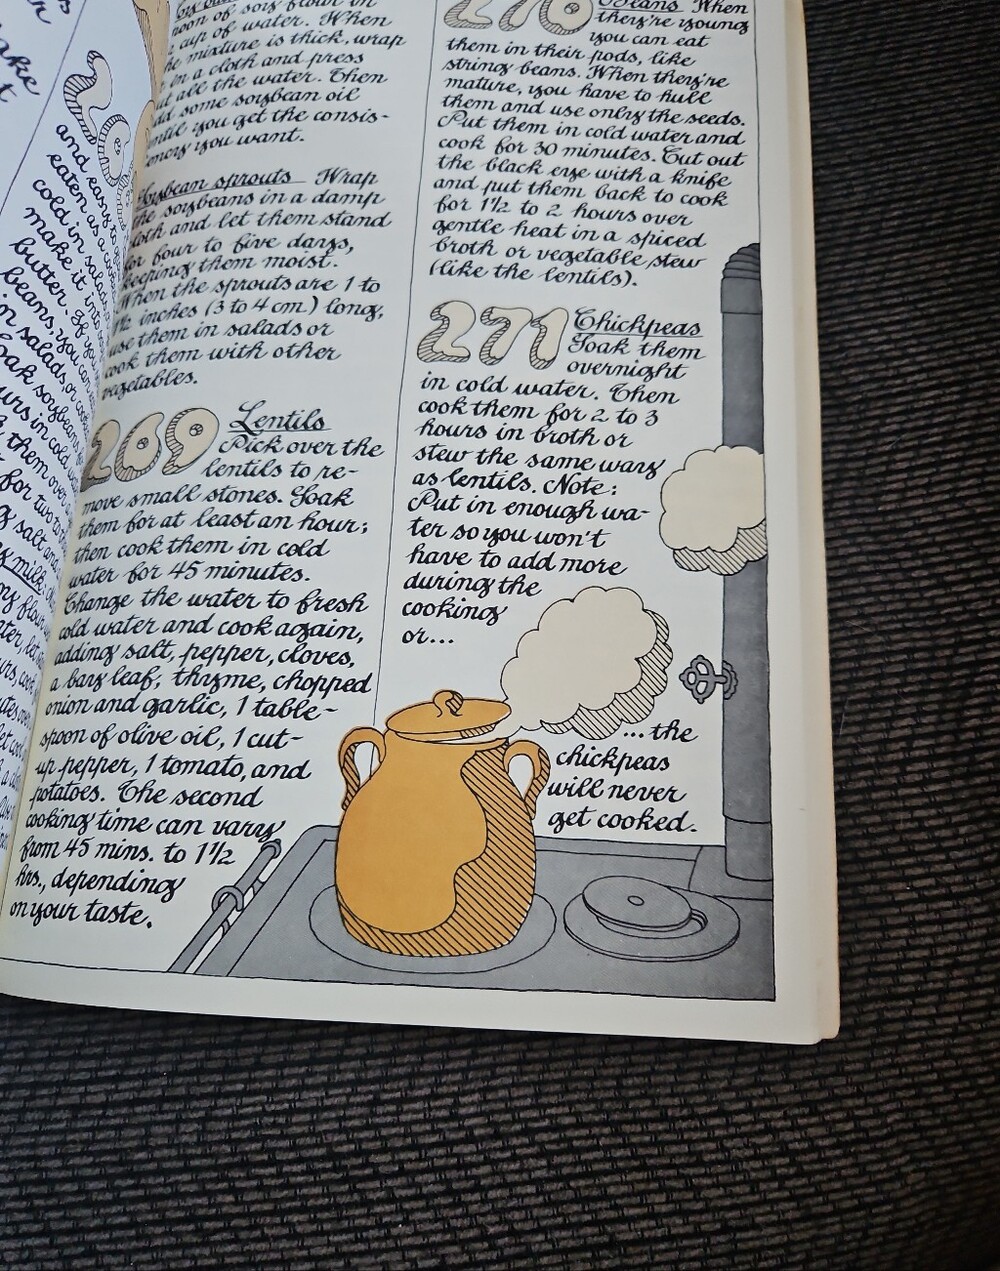 and easy to
eaten as a
cold in salads,
make it into
butter. If you
beans, you can
in salads, or
soak soybeans
them over
for two to
salt and
milk.
flour in
cup of water. When
mixture is thick, wrap
in a cloth and press
all the water. Then
some soybean oil
until you get the consis-
tency you want.
Soybean sprouts Wrap
the soybeans in a damp
cloth and let them stand
for four to five days,
keeping them moist.
When the sprouts are 1 to
1½ inches (3 to 4 cm.) long,
use them in salads or
cook them with other
vegetables.
269 Lentils
Pick over the
lentils to re-
move small stones. Soak
them for at least an hour;
then cook them in cold
water for 45 minutes.
Change the water to fresh
cold water and cook again,
adding salt, pepper, cloves,
a bay leaf, thyme, chopped
onion and garlic, 1 table-
spoon of olive oil, 1 cut-
up pepper, 1 tomato, and
potatoes. The second
cooking time can vary
from 45 mins. to 1½
hrs., depending
on your taste.
270 Beans When
they're young
you can eat
them in their pods, like
string beans. When they're
mature, you have to hull
them and use only the seeds.
Put them in cold water and
cook for 30 minutes. Cut out
the black eye with a knife
and put them back to cook
for 1½ to 2 hours over
gentle heat in a spiced
broth or vegetable stew
(like the lentils).
271 Chickpeas
Soak them
overnight
in cold water. Then
cook them for 2 to 3
hours in broth or
stew the same way
as lentils. Note:
Put in enough wa-
ter so you won't
have to add more
during the
cooking
or...
...the
chickpeas
will never
get cooked.